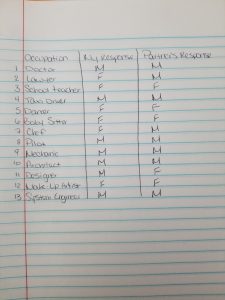 Occupation My Response Partner's Response
1 Doctor M M
2 Lawyer F M
3 School teacher F F
4 Taxi Driver M M
5 Dancer F F
6 Baby Sitter F F
7 Chef F M
8 Pilot M M
9 Mechanic M M
10 Architect M M
11 Designer M F
12 Make Up Artist F F
13 System Engineer M M